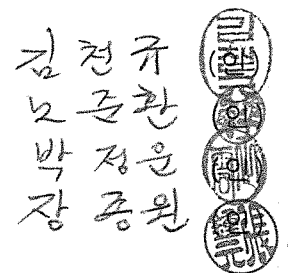 김 천 규
노 준 환
박 정 운
장 종 원